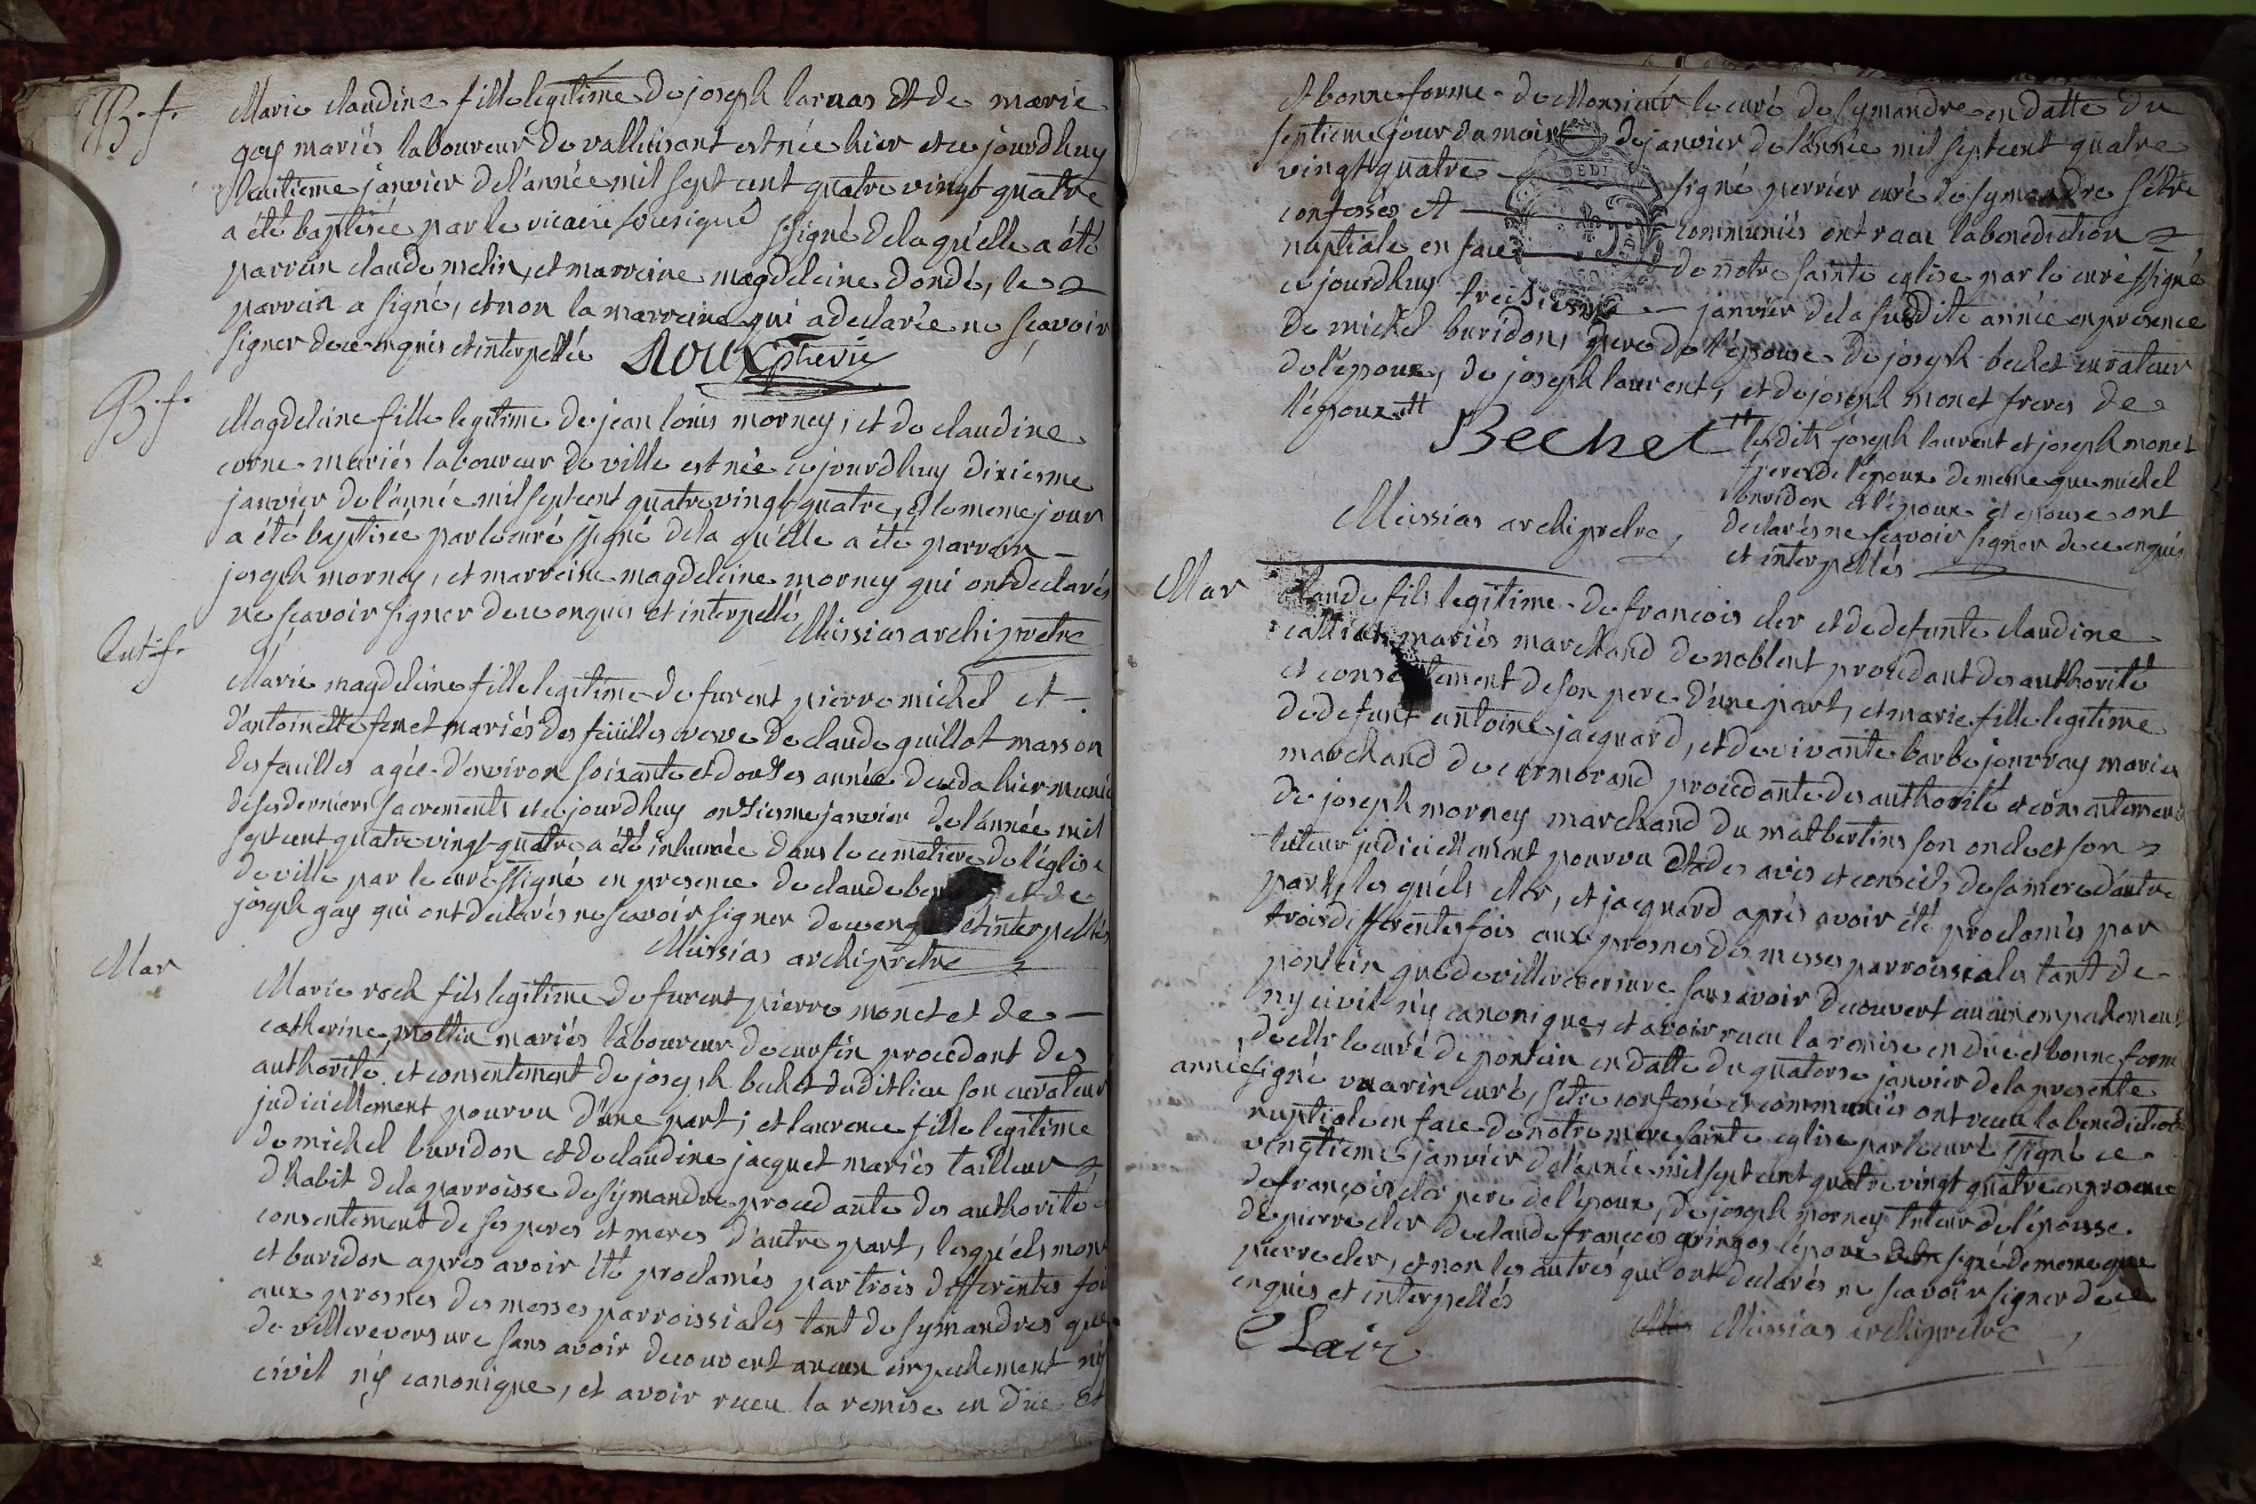 B. f.
Marie claudine fille legitime de joseph larnas et de marie
gay mariés laboureur de valluisant est née hier et ce jourdhuy
huitieme janvier de l'année mil sept cent quatre vingt quatre
a été baptisée par le vicaire sousigné ssigné dela quelle a été
parrain claude melin, et marreine magdeleine dondé, le
parrain a signé, et non la marreine qui a declarée ne scavoir
signer de ce enquis et interpellée Roux
B. f.
Magdeleine fille legitime de jean louis morney, et de claudine
corne mariés laboureur de ville est née ce jourdhuy dixiesme
janvier de l'année mil sept cent quatre vingt quatre, et le meme jour
a été baptisée par le curé ssigné dela quelle a été parrain
joseph morney, et marreine magdeleine morney qui ont declarés
ne scavoir signer de ce enquis et interpellé
Missias archipretre
Ent. f.
Marie magdeleine fille legitime de furent pierre michel et
d'antoinette fenet mariés des feüilles veuve de claude guillot masson
des feuilles agée d'environ soixante et douzes année deceda hier munie
de ses derniers sacrements et ce jourdhuy onziesme janvier de l'année mil
sept cent quatre vingt quatre a été inhumée dans le cemetiere de l'église
de ville par le curé ssigné en presence de claude et de
joseph gay qui ont declarés ne scavoir signer de ce et interpellés
Missias archipretre
Mar
Marie roch fils legitime de furent pierre monet et de
catherine mottin mariés laboureur de curfin procedant des
authorité et consentement de joseph bechet dudit lieu son curateur
judiciellement pourvu d'une part; et laurence fille legitime
de michel buridon et de claudine jacquet mariés tailleur
d'habit dela parroisse de symandre procedante des authorité et
consentement de ses peres et meres d'autre part, lesquels monet
et buridon apres avoir été proclamés par trois differentes fois
aux prosnes des messes parroissiales tant de symandres que
de villereversure sans avoir decouvert aucun empechement ny
civil n'y canonique, et avoir receu la remise en due et
et bonne forme de Monsieur le curé de symandre en datte du
septieme jour du mois de janvier de l'année mil sept cent quatre
vingt quatre signé perrier curé de symandre s'etre
confessés et communiés ont receu la benediction
nuptiale en face de notre sainte eglise par le curé ssigné
ce jourdhuy treisiesme janvier de la susdite année en presence
de michel buridon, pere de l'epouse de joseph bechet curateur
de l'epoux, de joseph laurent, et de joseph monet freres de
l'epoux
Bechet
lesdits joseph laurent et joseph monet
freres de l'epoux de meme que michel
buridon et l'epoux et epouse ont
declarés ne scavoir signer de ce enquis
et interpellés
Missias archipretre
Mar
Claude fils legitime de francois cler et de defunte claudine
mariés marchand de noblent procedant des authorité
et consentement de son pere d'une part, et marie fille legitime
de defunt antoine jacquard, et de vivante barbe jourray mariés
marchand de cormorand procedante des authorité et consentement
de joseph morney marchand du matbertins son oncle et son
tuteur judiciellement pourvu et des avis et conseils de sa mere d'autre
part, les quels cler, et jacquard aprés avoir été proclamés par
trois differentes fois aux prosnes des messes parroissiales tant de
pontein que de villereversure sans avoir decouvert aucun empechement
ny civil n'y canonique, et avoir receu la remise en due et bonne forme
de mr le curé de pontein en datte du quatorse janvier de la presente
année signé vuarin curé, s'etre confessé et communiés ont receu la benediction
nuptiale en face de notre mere sainte eglise par le curé ssigné ce
vingtieme janvier de l'année mil sept cent quatre vingt quatre en presence
de françois cler pere de l'epoux, de joseph morney tuteur de l'epouse
de pierre cler de claude francois gringos l'epoux signé de meme que
pierre cler, et non les autres qui ont declarés ne scavoir signer de ce
enquis et interpellés
Missias archipretre
CLair